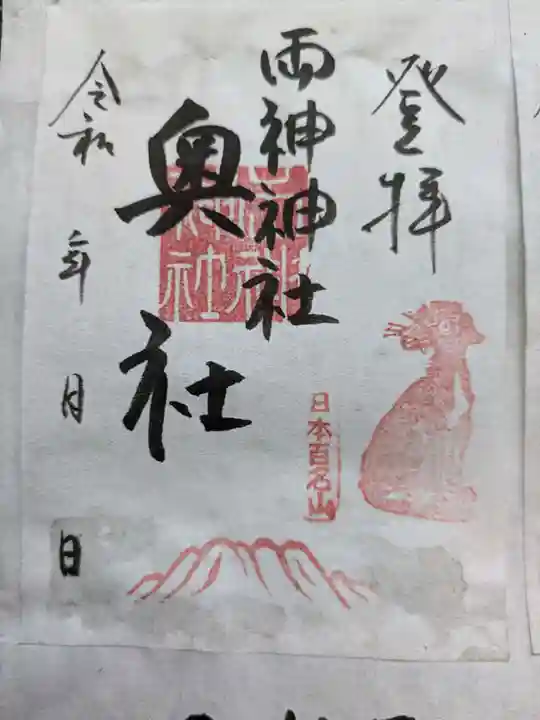 登拝
雨神神社
奥社
日本百名山
令和 年 月 日